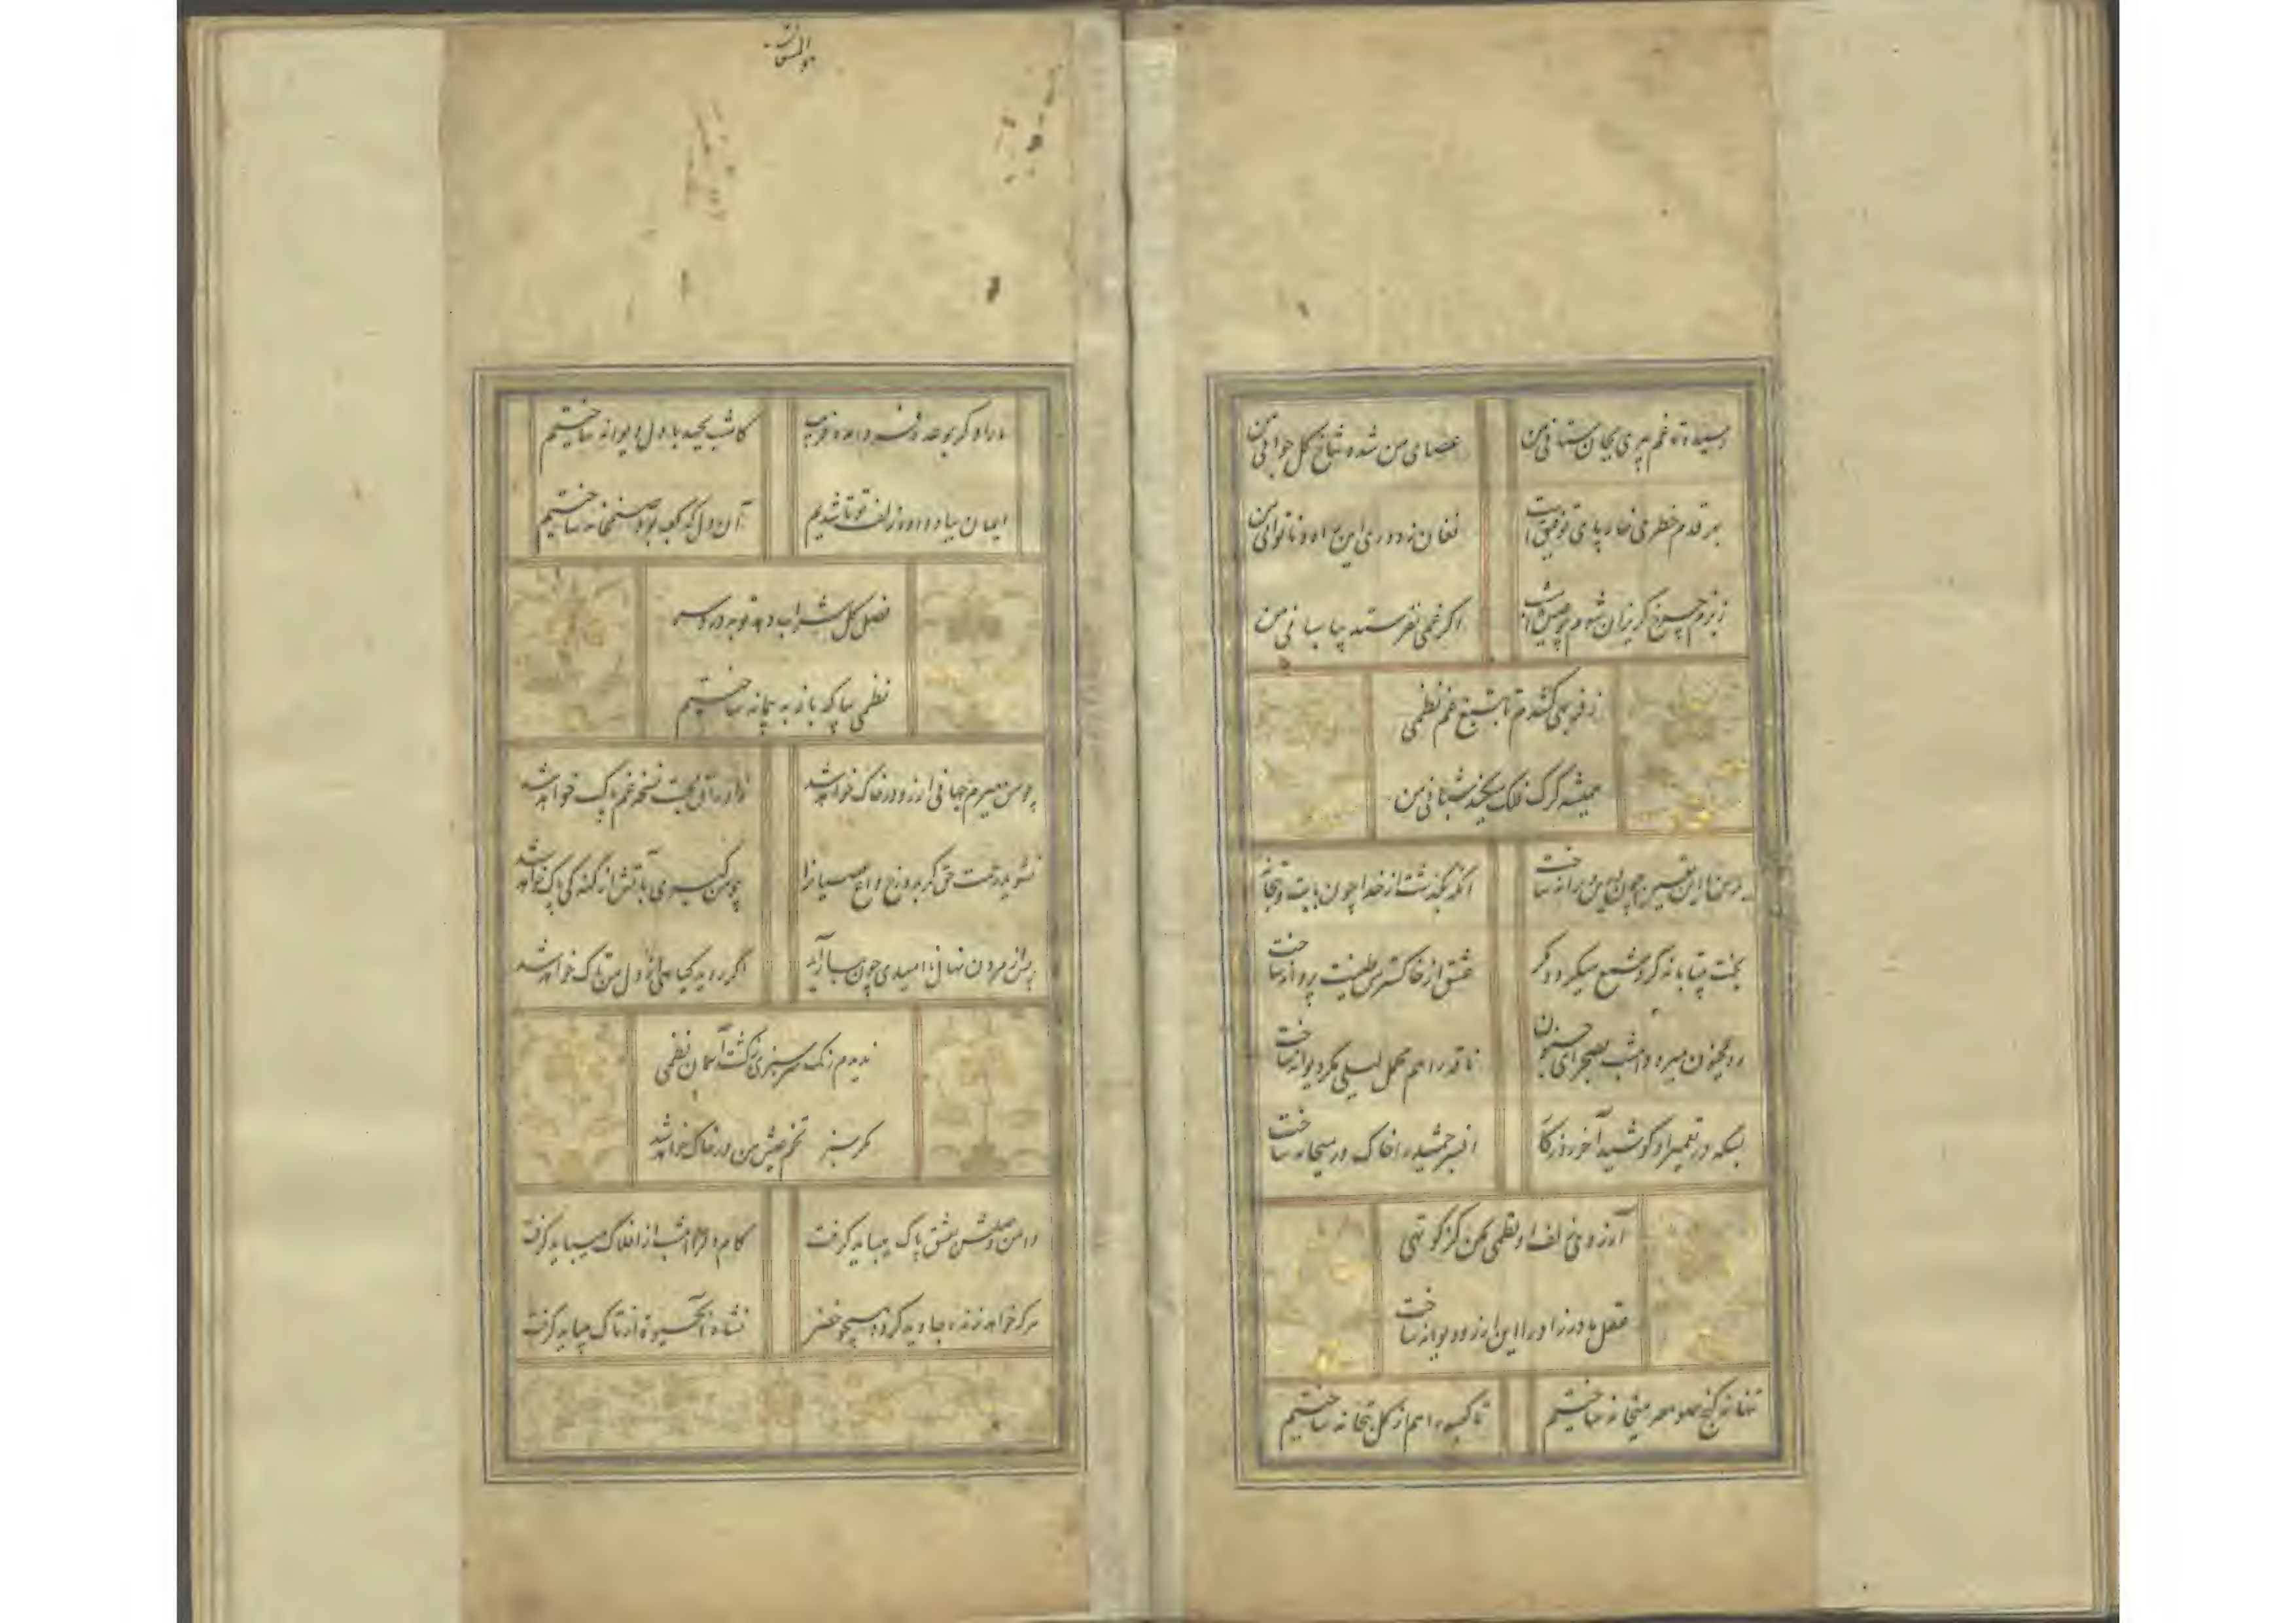 رسیده تا غم پیری بجان ستانی من
عصای من شده شاخ گل جوانی من
بهر قدم خطری خار پای توفیق است
فغان ز دوری این راه و ناتوانی من
ز بزم چرخ گریزان شوم
اگر غمی نفرستد بپاسبانی من
ز فربهی کشدم تا بتیغ غم نظمی
همیشه گرگ فلک میکند شبانی من
این چون این ویرانه ساخت
آنکه بگذشت از خدا چون با بت و بتخانه ساخت
بخت بیتابانه گرد شمع میگردد مگر
عشق از خاکسترش طینت پروانه ساخت
رو بمجنون میرود امشب بصحرای جنون
ناقه را هم محمل لیلی مگر دیوانه ساخت
بسکه در تعمیر او کوشید آخر روزگار
افسر جمشید را خاک در میخانه ساخت
آرزوی زلف او نظمی مکن کز کوتهی
عقل مادرزاد را این آرزو دیوانه ساخت
تنها نه کنج صومعه میخانه ساختیم
تا کعبه را هم از گل بتخانه ساختیم
ما را دگر بوعده فردا مده فریب
کامشب بخود با دل دیوانه ساختیم
ایمان بباد داده زلف تو تا شدیم
آن دل که کعبه بود صنمخانه ساختیم
فصل گل شراب دهد توبه درد سر
نظمی بیا که باز به پیمانه ساختیم
چو من میرم جهانی آرزو در خاک خواهد شد
ز اوراق محبت نسخه غم پاک خواهد شد
نشوید رحمت حق گر بدوزخ داغ عصیانرا
چو من گبری بآتش از گنه کی پاک خواهد شد
پس از مردن نهال ناامیدی چون ببار آید
اگر روید گیاهی از دل من تاک خواهد شد
ندیدم رنگ سرسبزی ز کشت آسمان نظمی
مگر سبز تخم عیش من در خاک خواهد شد
دامن وصلش بعشق پاک میباید گرفت
کام دل را امشب از افلاک میباید گرفت
هر که خواهد زنده جاوید گردد همچو خضر
نشاه آب حیوة از تاک میباید گرفت